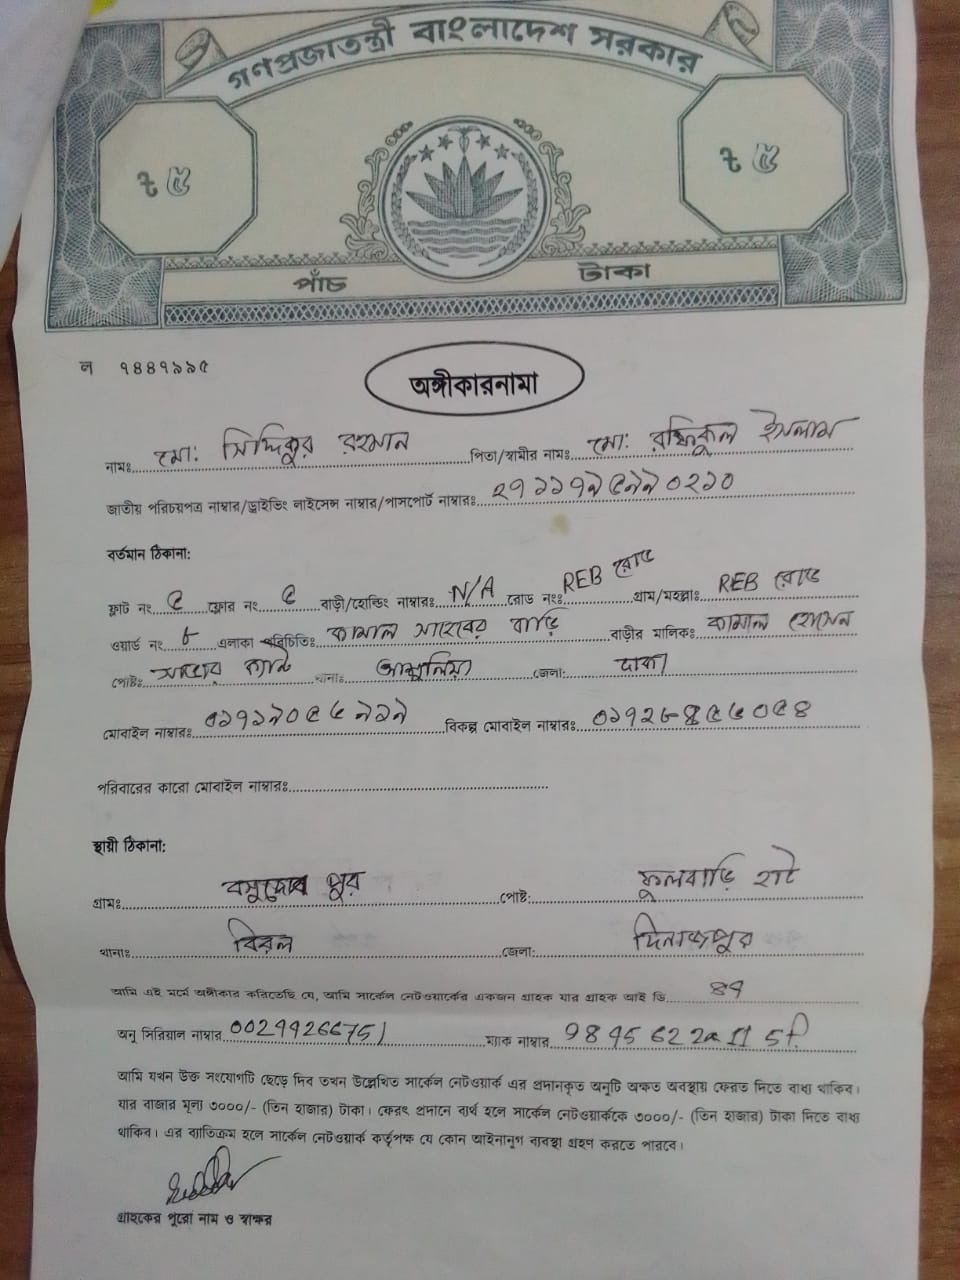 গণপ্রজাতন্ত্রী বাংলাদেশ সরকার
৳ ৫ ৳ ৫
পাঁচ টাকা
ল ৭৪৪৭৯৯৫
অঙ্গীকারনামা
নামঃ মো: সিদ্দিকুর রহমান পিতা/স্বামীর নামঃ মো: রফিকুল ইসলাম
জাতীয় পরিচয়পত্র নাম্বার/ড্রাইভিং লাইসেন্স নাম্বার/পাসপোর্ট নাম্বারঃ
বর্তমান ঠিকানা:
ফ্লাট নং ৫ ফ্লোর নং ৫ বাড়ী/হোল্ডিং নাম্বারঃ N/A রোড নংঃ REB রোড গ্রাম/মহল্লাঃ REB রোড
ওয়ার্ড নং ৮ এলাকা পরিচিতিঃ কামাল সাহেবের বাড়ি বাড়ীর মালিকঃ কামাল হোসেন
পোষ্টঃ সাভার ক্যান্ট থানাঃ আশুলিয়া জেলা: ঢাকা
মোবাইল নাম্বারঃ বিকল্প মোবাইল নাম্বারঃ
পরিবারের কারো মোবাইল নাম্বারঃ
স্থায়ী ঠিকানা:
গ্রামঃ বসুদেব পুর পোষ্ট: ফুলবাড়ি হাট
থানাঃ বিরল জেলা: দিনাজপুর
আমি এই মর্মে অঙ্গীকার করিতেছি যে, আমি সার্কেল নেটওয়ার্কের একজন গ্রাহক যার গ্রাহক আই ডি ৪৭
অনু সিরিয়াল নাম্বার ম্যাক নাম্বার
আমি যখন উক্ত সংযোগটি ছেড়ে দিব তখন উল্লেখিত সার্কেল নেটওয়ার্ক এর প্রদানকৃত অনুটি অক্ষত অবস্থায় ফেরত দিতে বাধ্য থাকিব।
যার বাজার মূল্য ৩০০০/- (তিন হাজার) টাকা। ফেরৎ প্রদানে ব্যর্থ হলে সার্কেল নেটওয়ার্ককে ৩০০০/- (তিন হাজার) টাকা দিতে বাধ্য
থাকিব। এর ব্যতিক্রম হলে সার্কেল নেটওয়ার্ক কর্তৃপক্ষ যে কোন আইনানুগ ব্যবস্থা গ্রহণ করতে পারবে।
গ্রাহকের পুরো নাম ও স্বাক্ষর